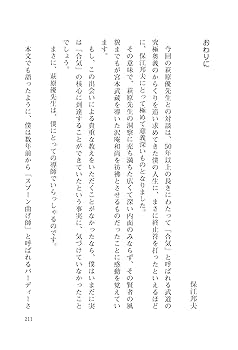 おわりに
保江邦夫
今回の萩原優先生との対談は、50年以上の長きにわたって「合気」と呼ばれる武道の
究極奥義のからくりを追い求めてきた僕の人生に、まさに終止符を打ったといえるほど
に、保江邦夫にとって極めて意義深いものとなりました。
その意味で、萩原先生の洞察に充ち満ちた広くて深い内面のみならず、その賢者の風
貌までもが宮本武蔵を導いた沢庵和尚を彷彿とさせるものだったことに感動を覚えてい
ます。
もし、この出会いによる貴重な教えをいただくことがなかったなら、僕はいまだに実
は「合気」の核心に到達することができていなかったという事実に、気づけていなかったこと
でしょう。
まさに、萩原優先生は、僕にとっての導師でいらっしゃるのです。
本文でも語ったように、僕は数年前から「スプーン曲げ師」と呼ばれるバーディーさ
211